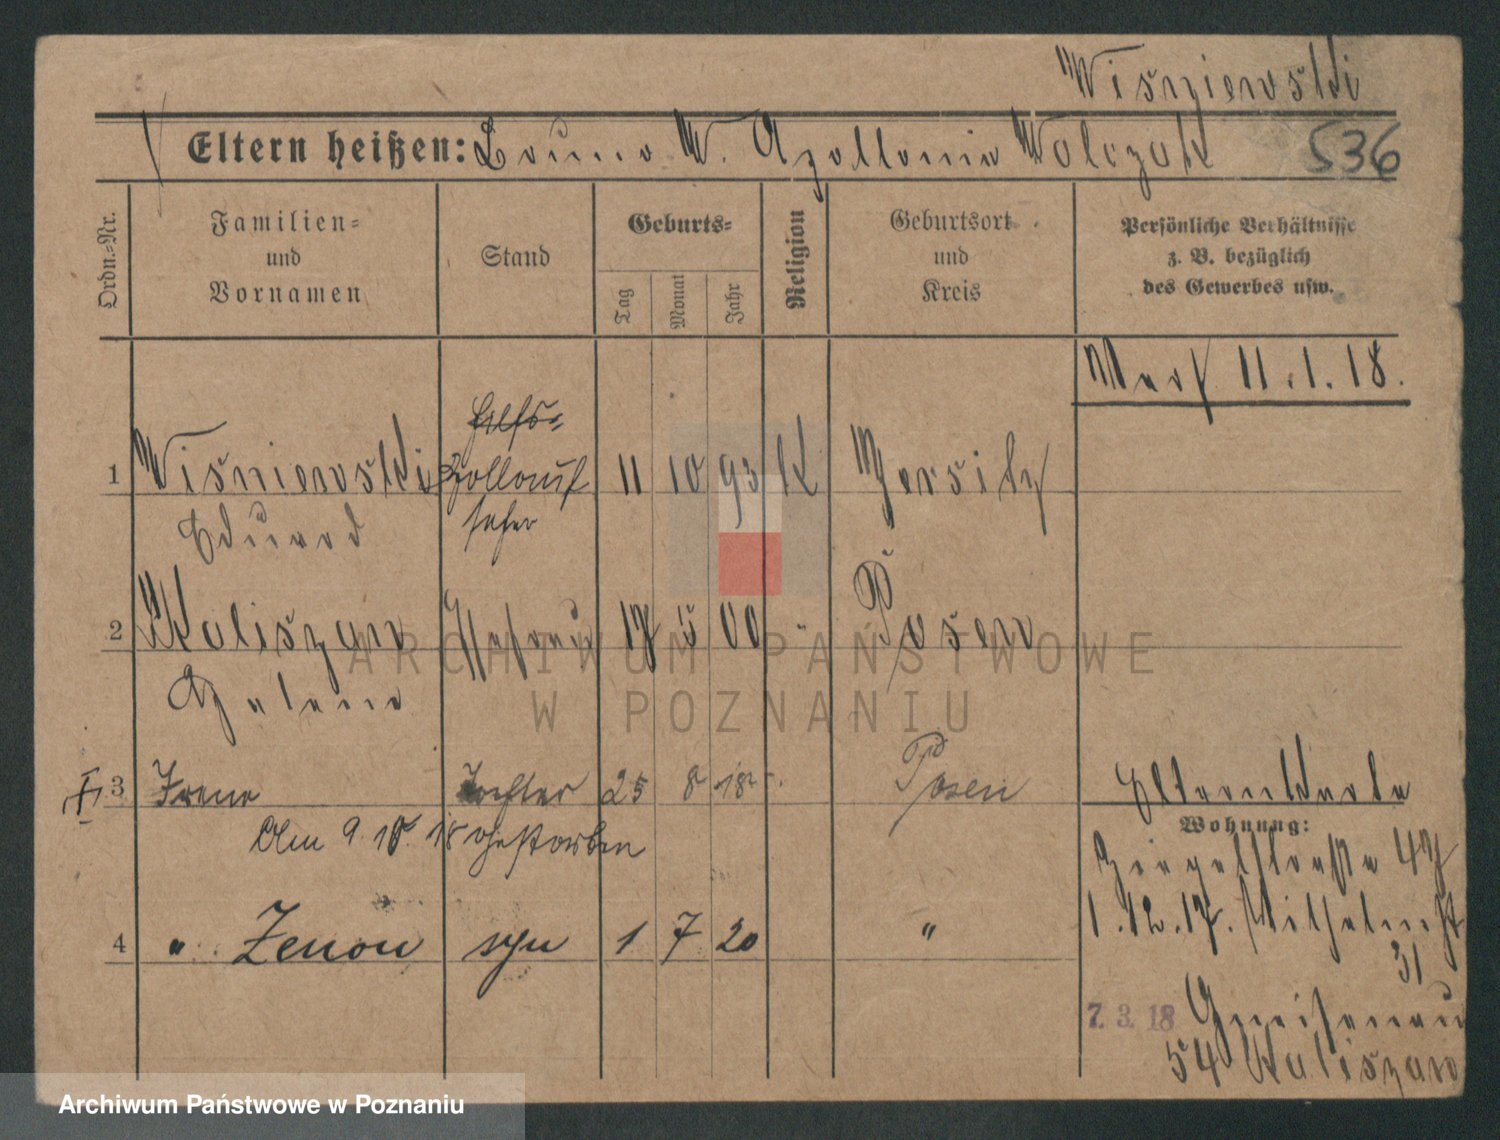 Wiśniewski
Eltern heißen: Bruno W. Apollonia Wolczak 536
Ordn.-Nr.
Familien- und Vornamen
Stand
Geburts-
Tag Monat Jahr
Religion
Geburtsort und Kreis
Persönliche Verhältnisse
z. B. bezüglich
des Gewerbes usw.
11.1.18.
Hilfs-
1 Wiśniewski Zollauf 11 10 93 K Jersitz
Eduard seher
2 Kaliszan Ehefrau 17 5 00 " Posen
Helene
3 Irene Tochter 25 8 18 Posen
Am 9. 10. 18 gestorben
Elternkarte
Wohnung:
4 " Zenon syn 1 7 20 "
1.12.17. Wilhelmst
31
7.3.18 Gneisenau
54 Kaliszan
ARCHIWUM PAŃSTWOWE
W POZNANIU
Archiwum Państwowe w Poznaniu